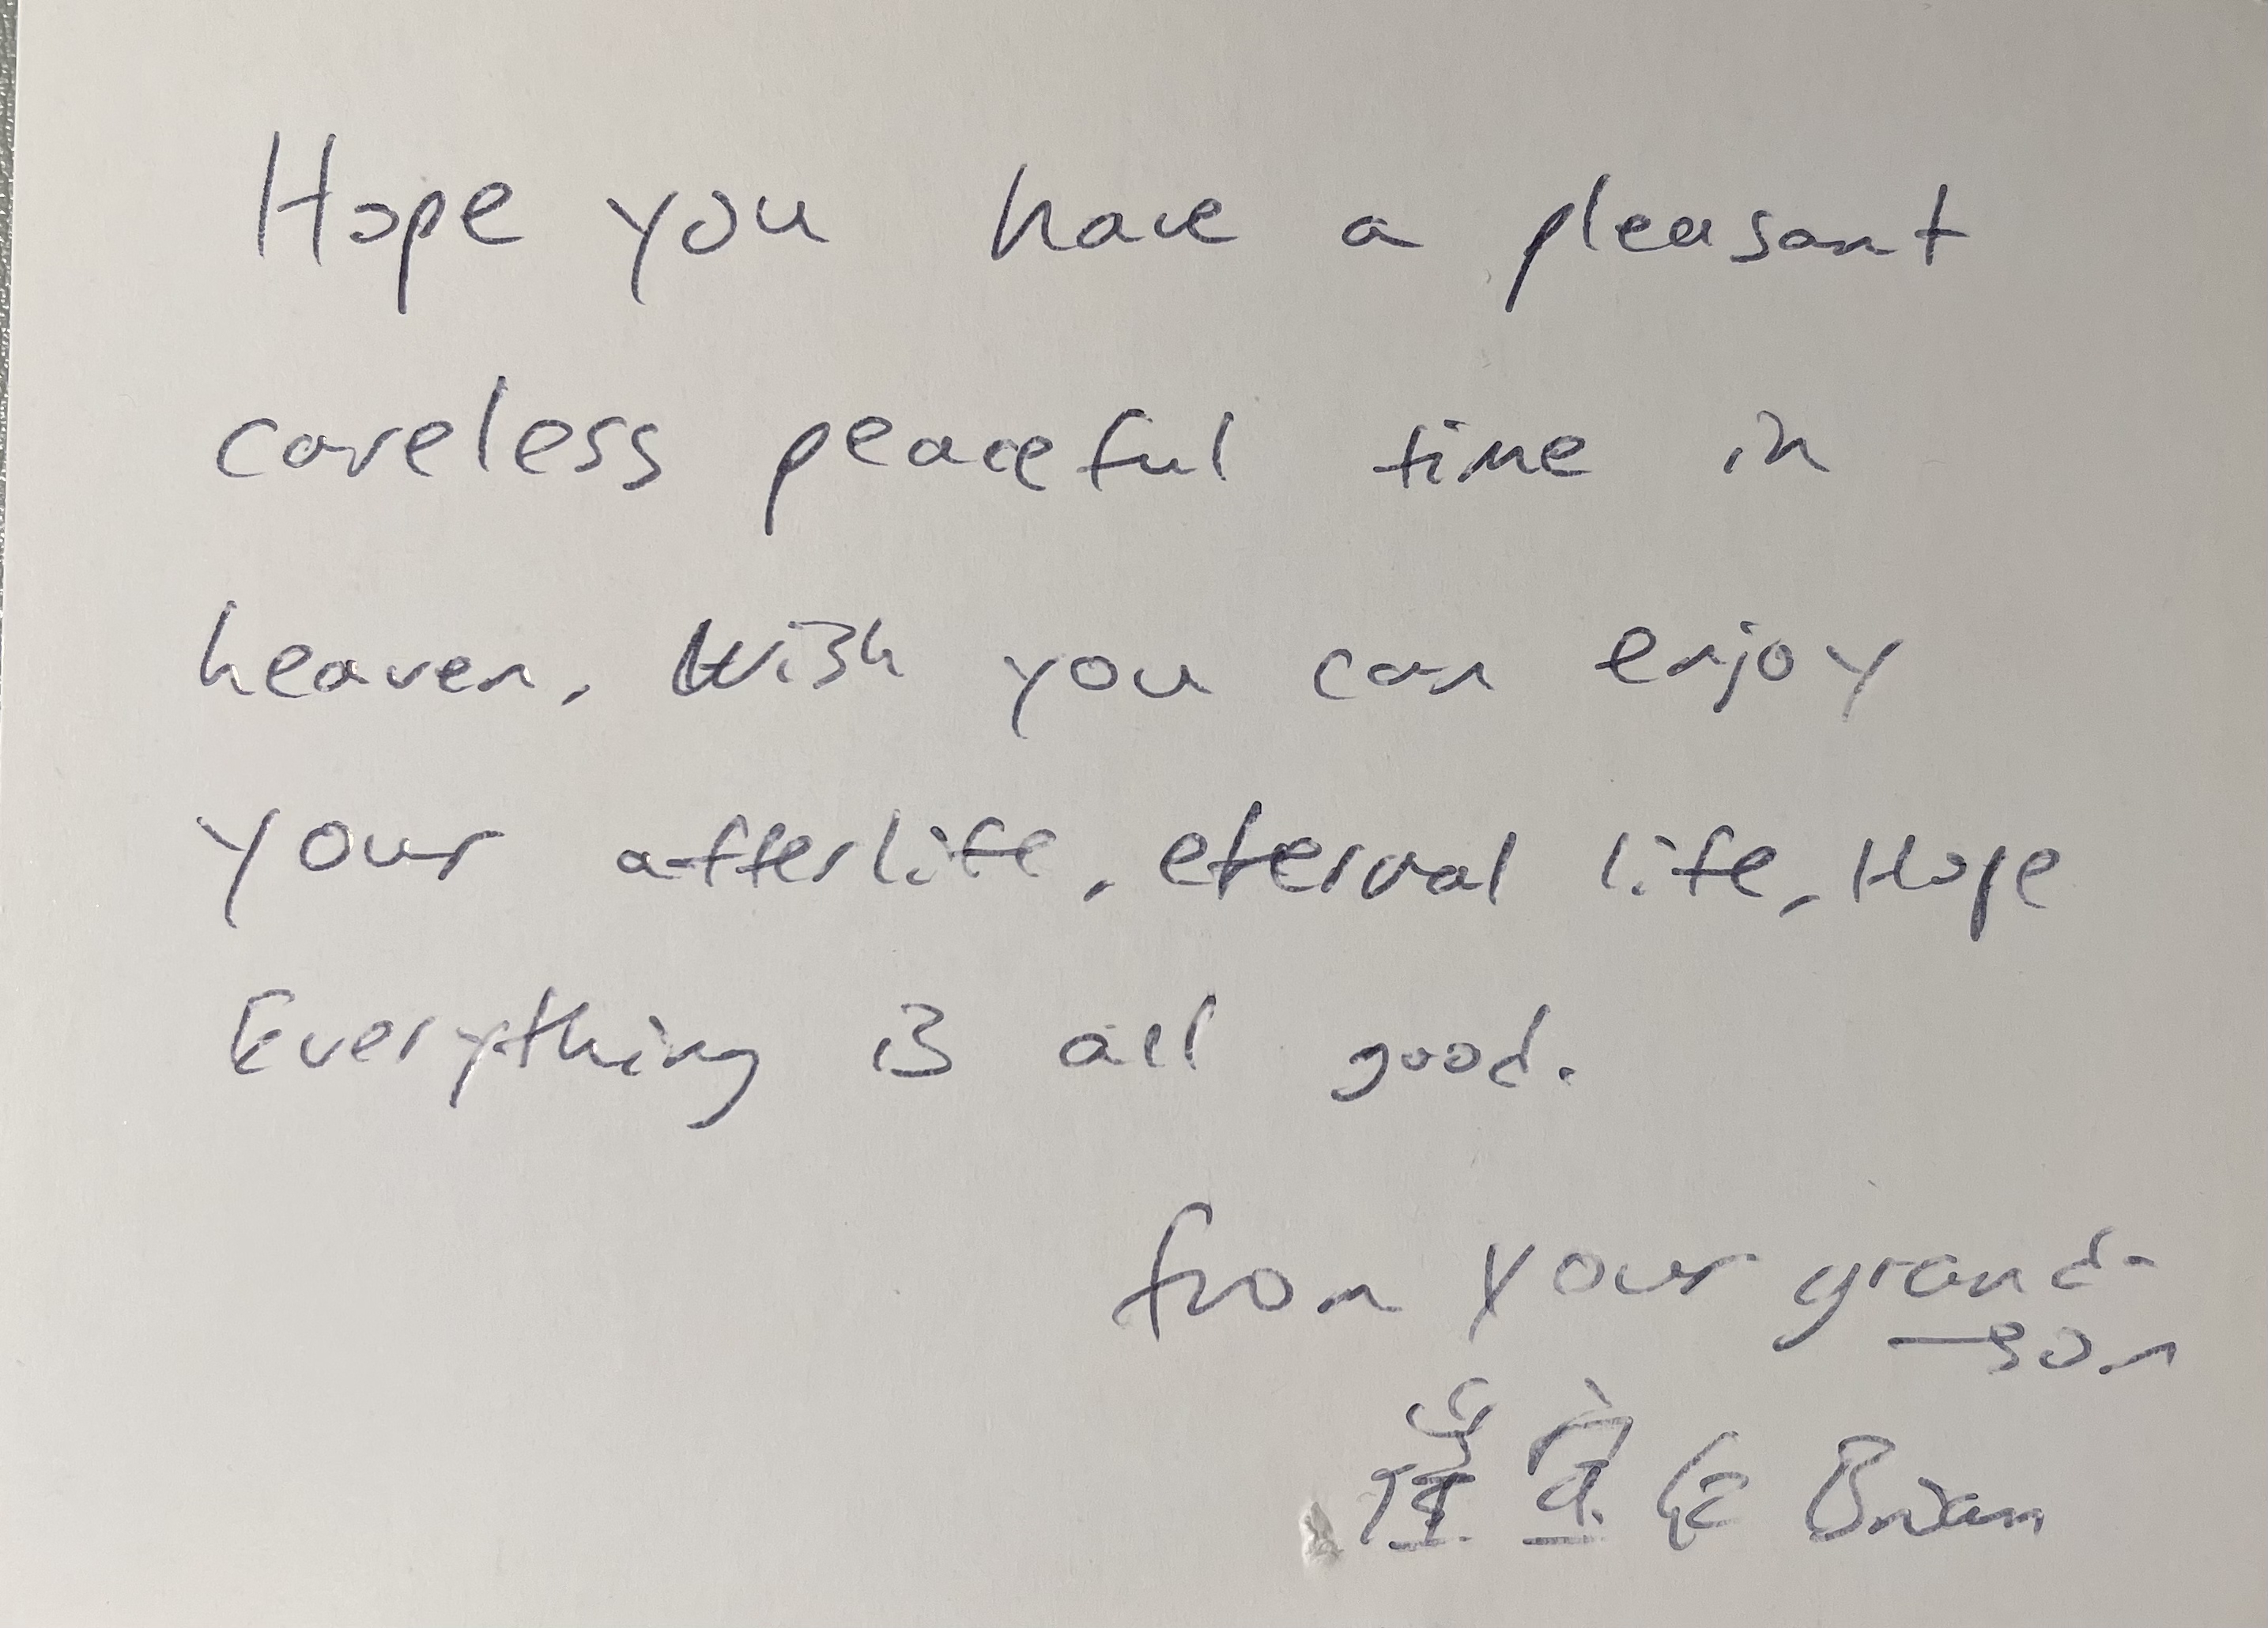 Hope you have a pleasant
careless peaceful time in
heaven. Wish you can enjoy
your afterlife, eternal life, Hope
Everything is all good.
from your grand-
son
Brian